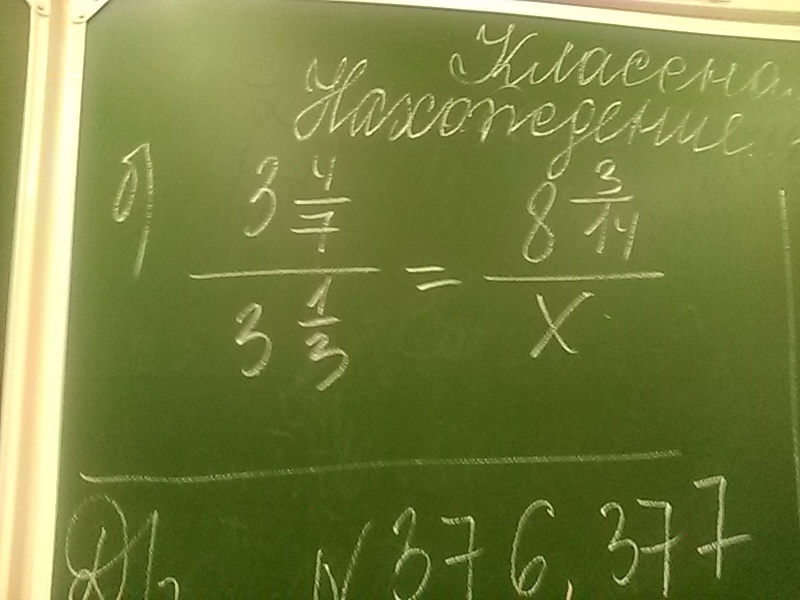 Классна
Нахождение
б) 3 4/7 / 3 1/3 = 8 3/14 / x
N 376, 377